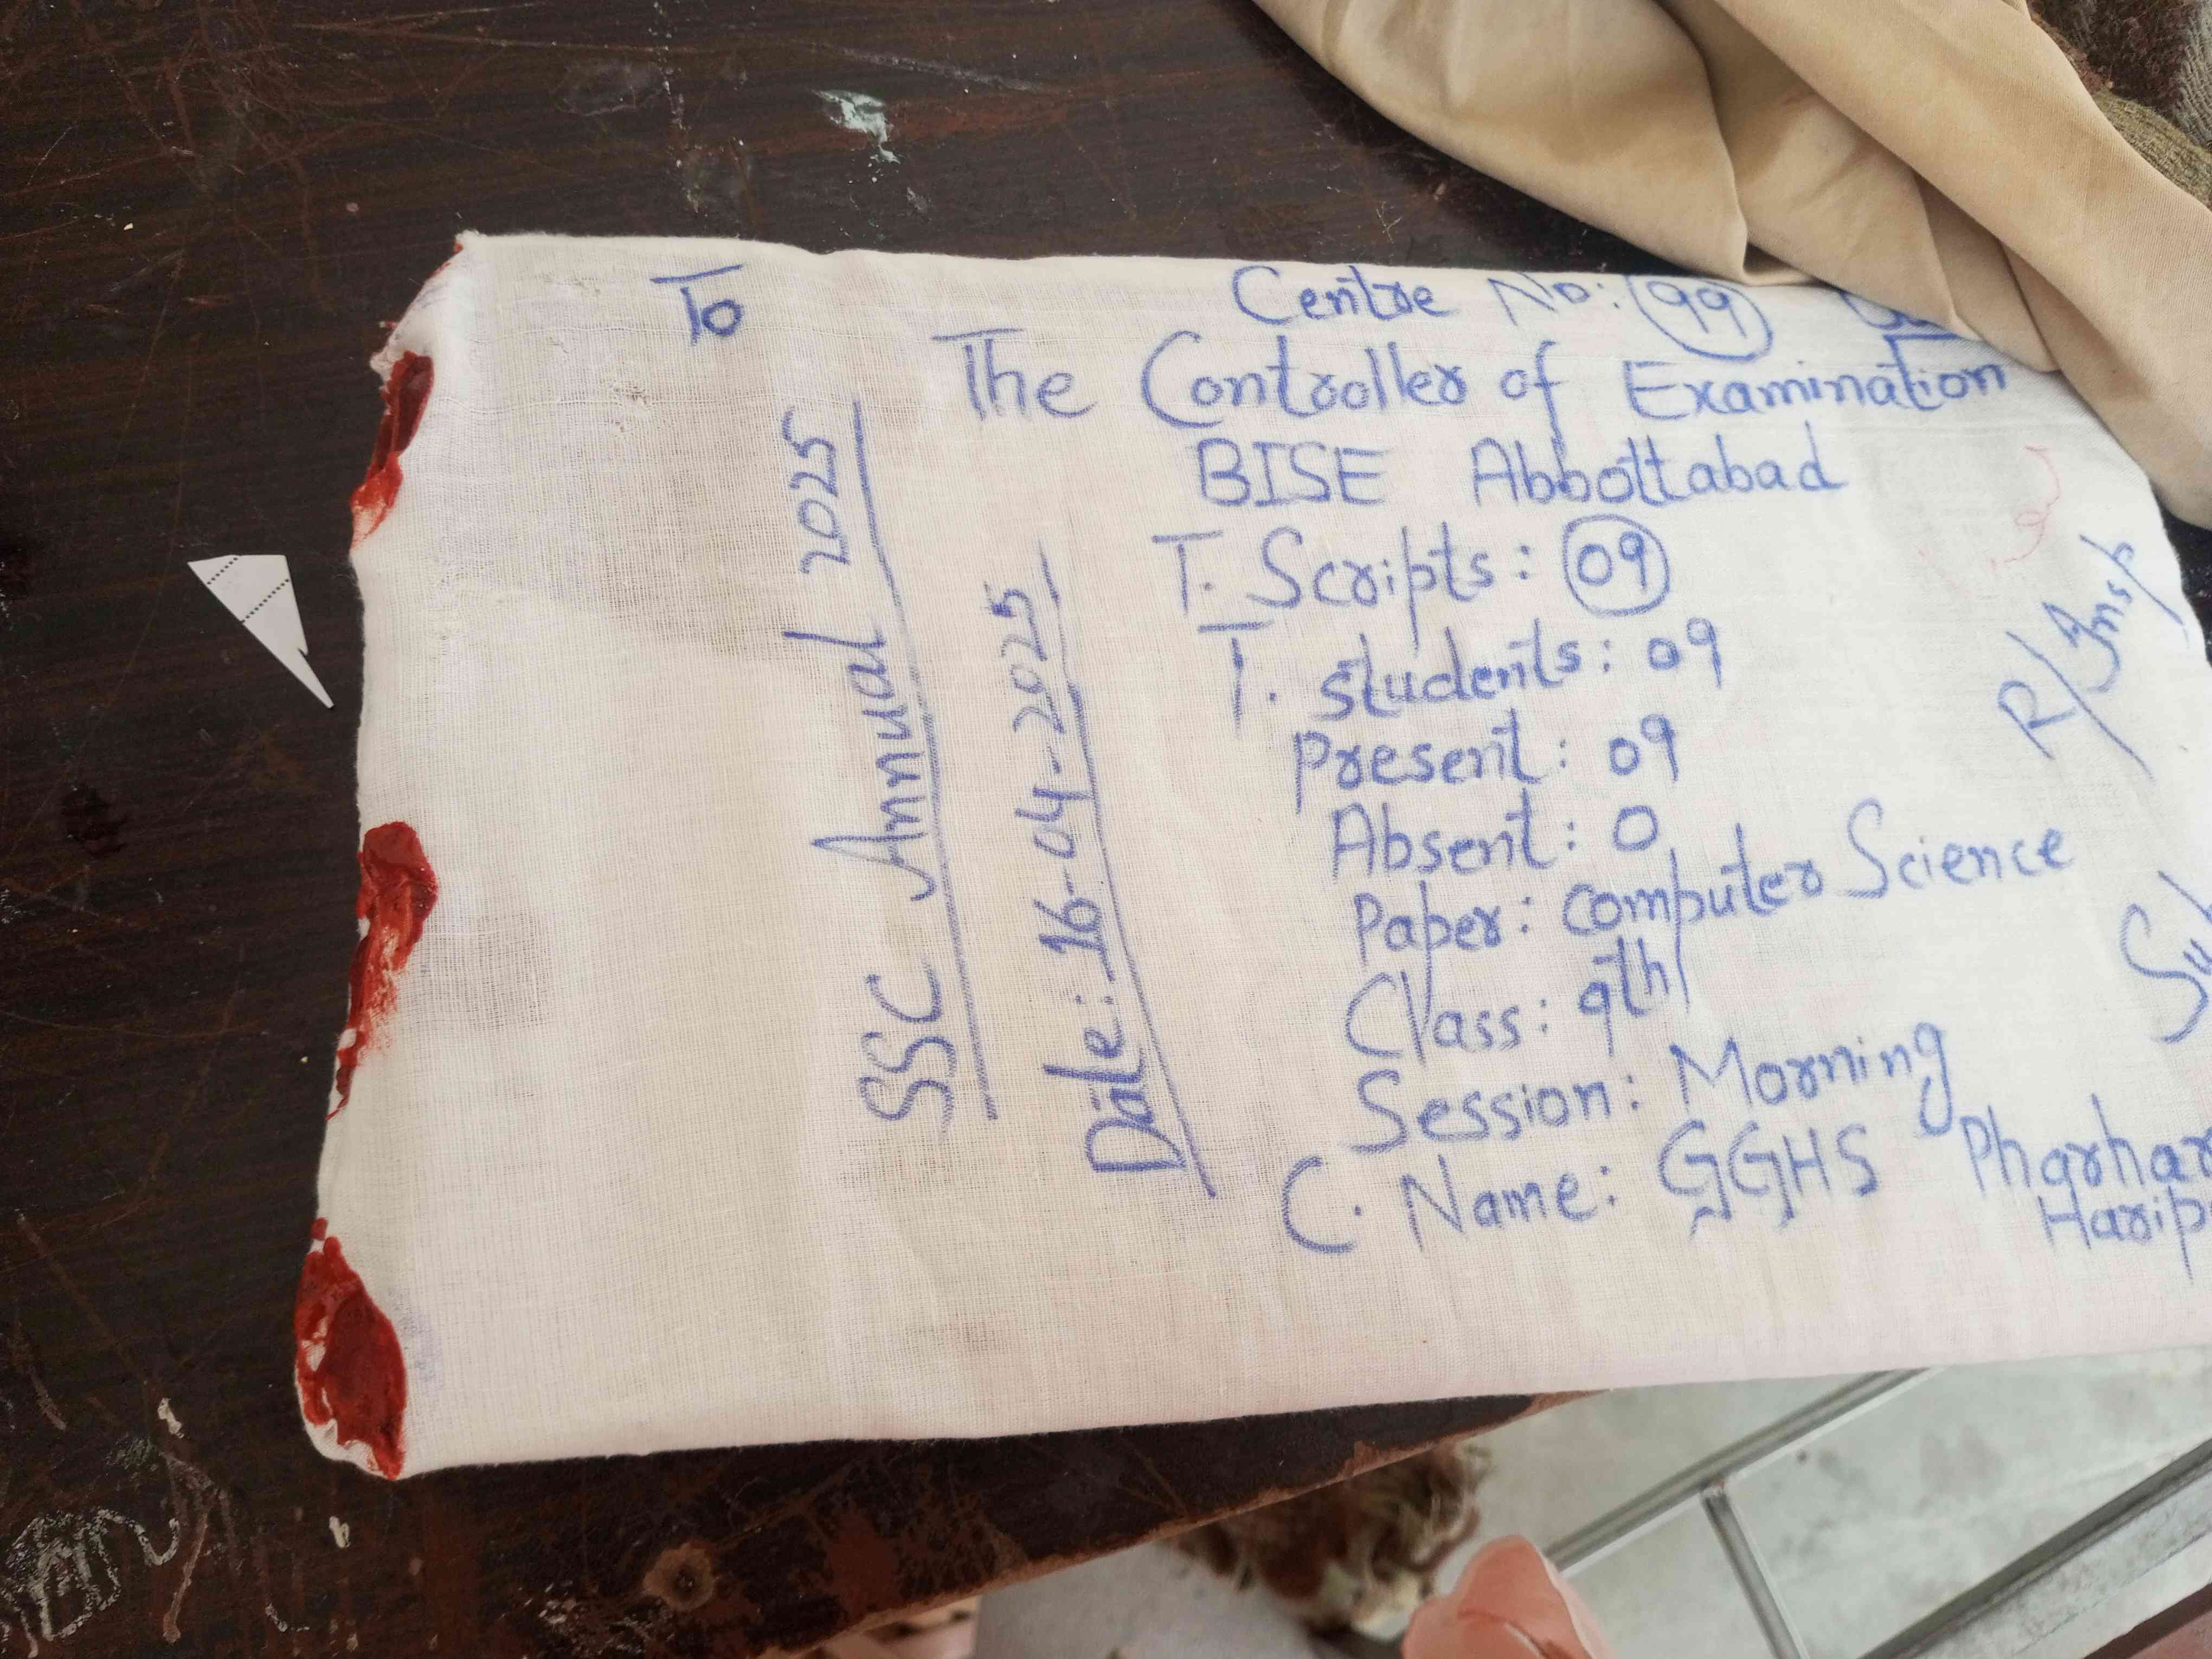 To
Centre No: 99
The Controller of Examination
BISE Abbottabad
T. Scripts: 09
T. students: 09
Present: 09
Absent: 0
Paper: Computer Science
Class: 9th
Session: Morning
C. Name: GGHS Pharhar
Harip
SSC Annual 2025
Date: 16-04-2025
R/Insp